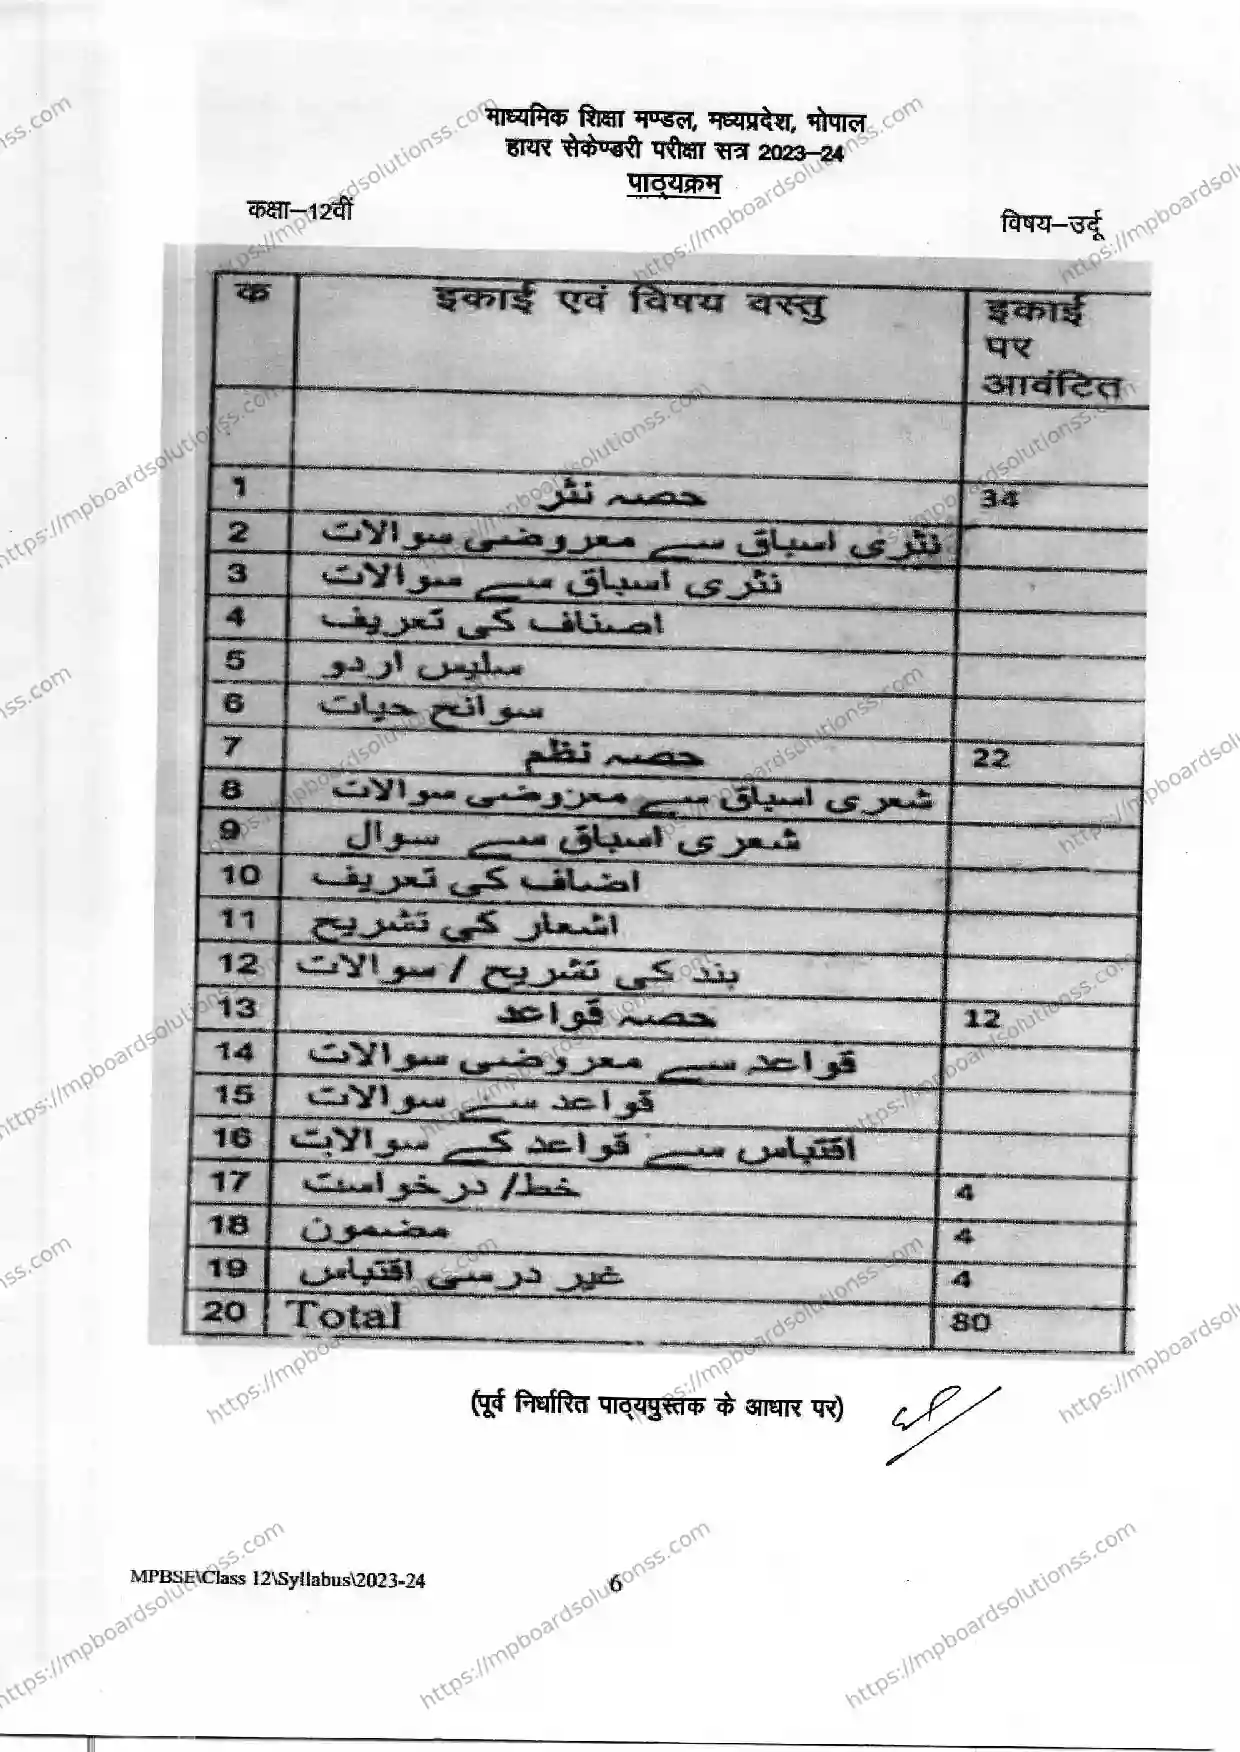 माध्यमिक शिक्षा मण्डल, मध्यप्रदेश, भोपाल
हायर सेकेण्डरी परीक्षा सत्र 2023–24
पाठ्यक्रम
कक्षा–12वीं
विषय–उर्दू
क इकाई एवं विषय वस्तु इकाई पर आवंटित
1 حصہ نثر 34
2 نثری اسباق سے معروضی سوالات
3 نثری اسباق سے سوالات
4 اصناف کی تعریف
5 سلیس اردو
6 سوانح حیات
7 حصہ نظم 22
8 شعری اسباق سے معروضی سوالات
9 شعری اسباق سے سوال
10 اضاف کی تعریف
11 اشعار کی تشریح
12 بند کی تشریح / سوالات
13 حصہ قواعد 12
14 قواعد سے معروضی سوالات
15 قواعد سے سوالات
16 اقتباس سے قواعد کے سوالات
17 خط/ درخواست 4
18 مضمون 4
19 غیر درسی اقتباس 4
20 Total 80
(पूर्व निर्धारित पाठ्यपुस्तक के आधार पर)
MPBSE\Class 12\Syllabus\2023-24
6
https://mpboardsolutionss.com